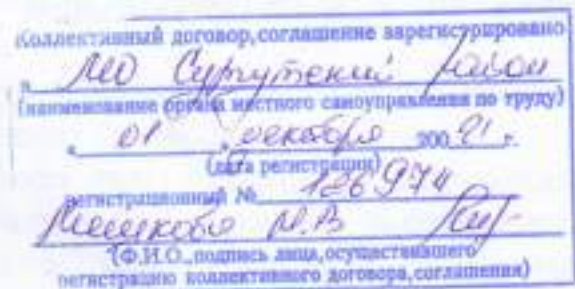 Коллективный договор,соглашение зарегистрировано
в МО Сургутский район
(наименование органа местного самоуправления по труду)
" 01 " декабря 200 21 г.
(дата регистрации)
регистрационный №
Мешкова М.В
(Ф.И.О.,подпись лица,осуществившего
регистрацию коллективного договора,соглашения)